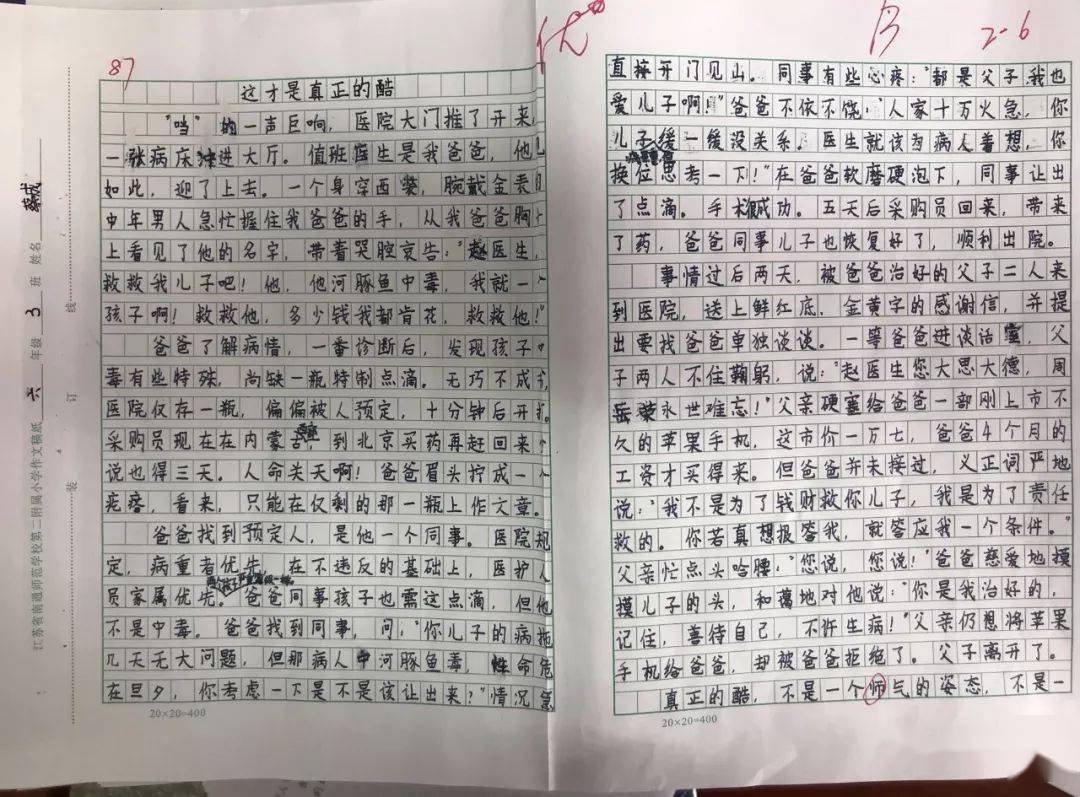 87
优
B
2-6
这才是真正的酷
"咣"的一声巨响，医院大门推了开来，
一张病床冲进大厅。值班医生是我爸爸，他
如此，迎了上去。一个身穿西装，腕戴金表的
中年男人急忙握住我爸爸的手，从我爸爸胸
上看见了他的名字，带着哭腔哀告："赵医生，
救救我儿子吧！他，他河豚鱼中毒，我就一
孩子啊！救救他，多少钱我都肯花，救救他！"
爸爸了解病情，一番诊断后，发现孩子中
毒有些特殊，尚缺一瓶特制点滴。无巧不成
医院仅存一瓶，偏偏被人预定，十分钟后开
采购员现在在内蒙古，到北京买药再赶回来
说也得三天。人命关天啊！爸爸眉头拧成一个
疙瘩，看来，只能在仅剩的那一瓶上作文章。
爸爸找到预定人，是他一个同事。医院规
定，病重者优先。在不违反的基础上，医护人
员家属优先。爸爸同事孩子也需这点滴，但他
不是中毒。爸爸找到同事，问："你儿子的病拖
几天无大问题，但那病人中河豚鱼毒，性命危
在旦夕，你考虑一下是不是该让出来？"情况急
20×20=400
直接开门见山。同事有些心疼："都是父子，我也
爱儿子啊！"爸爸不依不饶："人家十万火急，你
儿子缓一缓没关系。医生就该为病人着想，你
换位思考一下！"在爸爸软磨硬泡下，同事让出
了点滴。手术很成功。五天后采购员回来，带来
了药，爸爸同事儿子也恢复好了，顺利出院。
事情过后两天，被爸爸治好的父子二人来
到医院，送上鲜红底、金黄字的感谢信，并提
出要找爸爸单独谈谈。一等爸爸进谈话室，父
子两人不住鞠躬，说："赵医生您大恩大德，周
永世难忘！"父亲硬塞给爸爸一部刚上市不
久的苹果手机，这市价一万七，爸爸4个月的
工资才买得来。但爸爸并未接过，义正词严地
说："我不是为了钱财救你儿子，我是为了责任
救的。你若真想报答我，就答应我一个条件。"
父亲忙点头哈腰："您说，您说！"爸爸慈爱地摸
摸儿子的头，和蔼地对他说："你是我治好的，
记住，善待自己，不许生病！"父亲仍想将苹果
手机给爸爸，却被爸爸拒绝了。父子离开了。
真正的酷，不是一个帅气的姿态，不是一
20×20=400
江苏省南通师范学校第二附属小学作文稿纸 六 年级 3 班 姓名
装 订 线